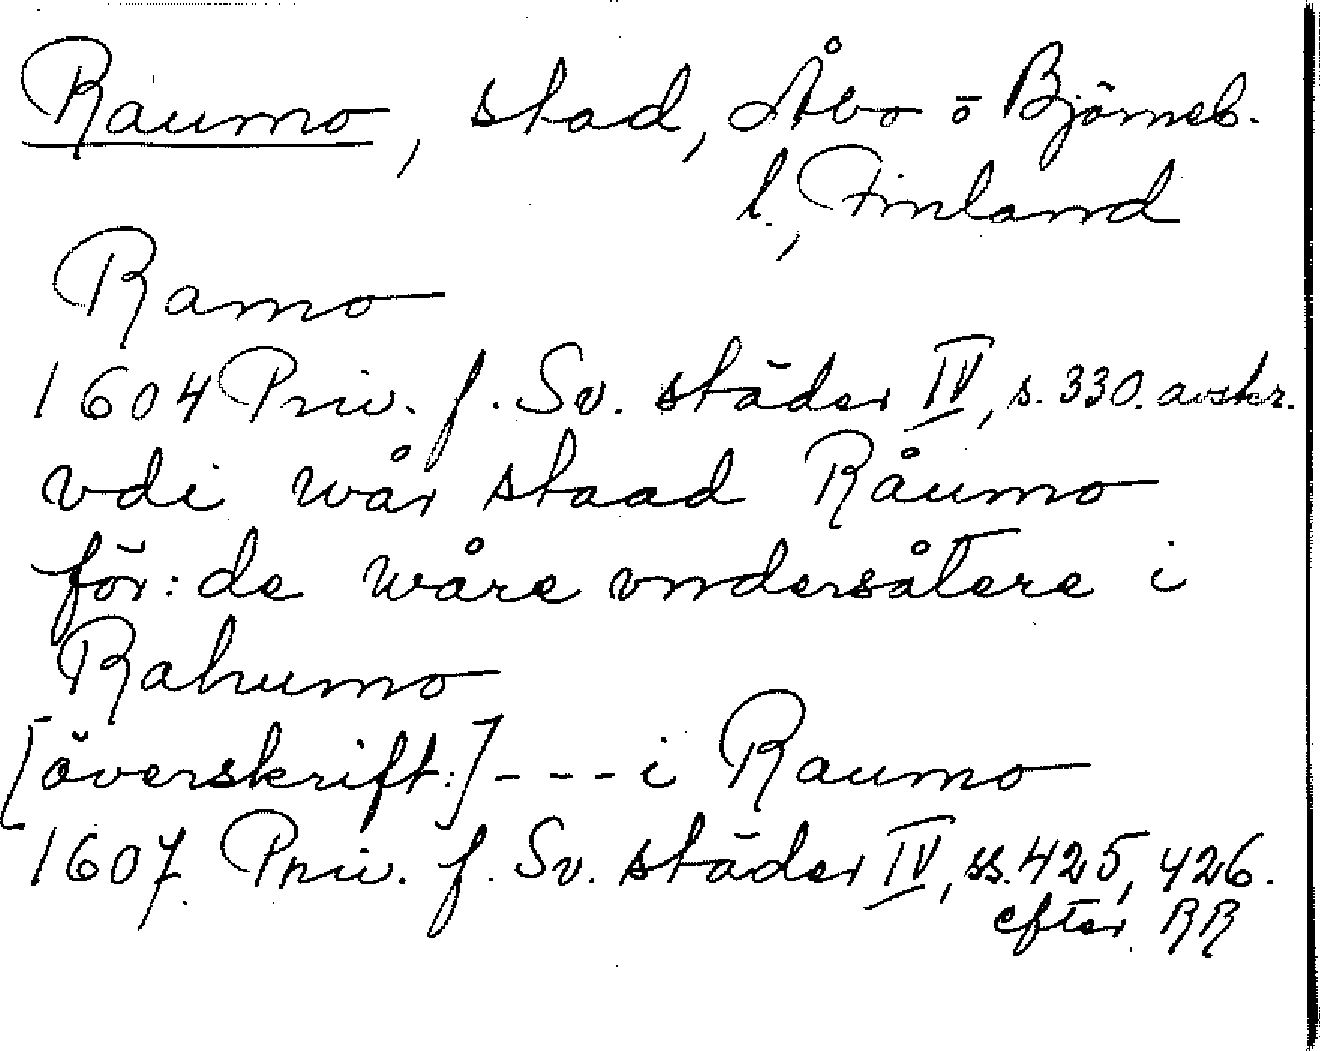 Raumo, stad, Åbo o Björneb.
l., Finland
Ramo
1604 Priv. f. Sv. städer IV, s. 330. avskr.
vdi wår staad Råumo
för: de wåre vndersåtere i
Rahumo
[överskrift:] - - - i Raumo
1607 Priv. f. Sv. städer IV, ss. 425, 426.
efter RR